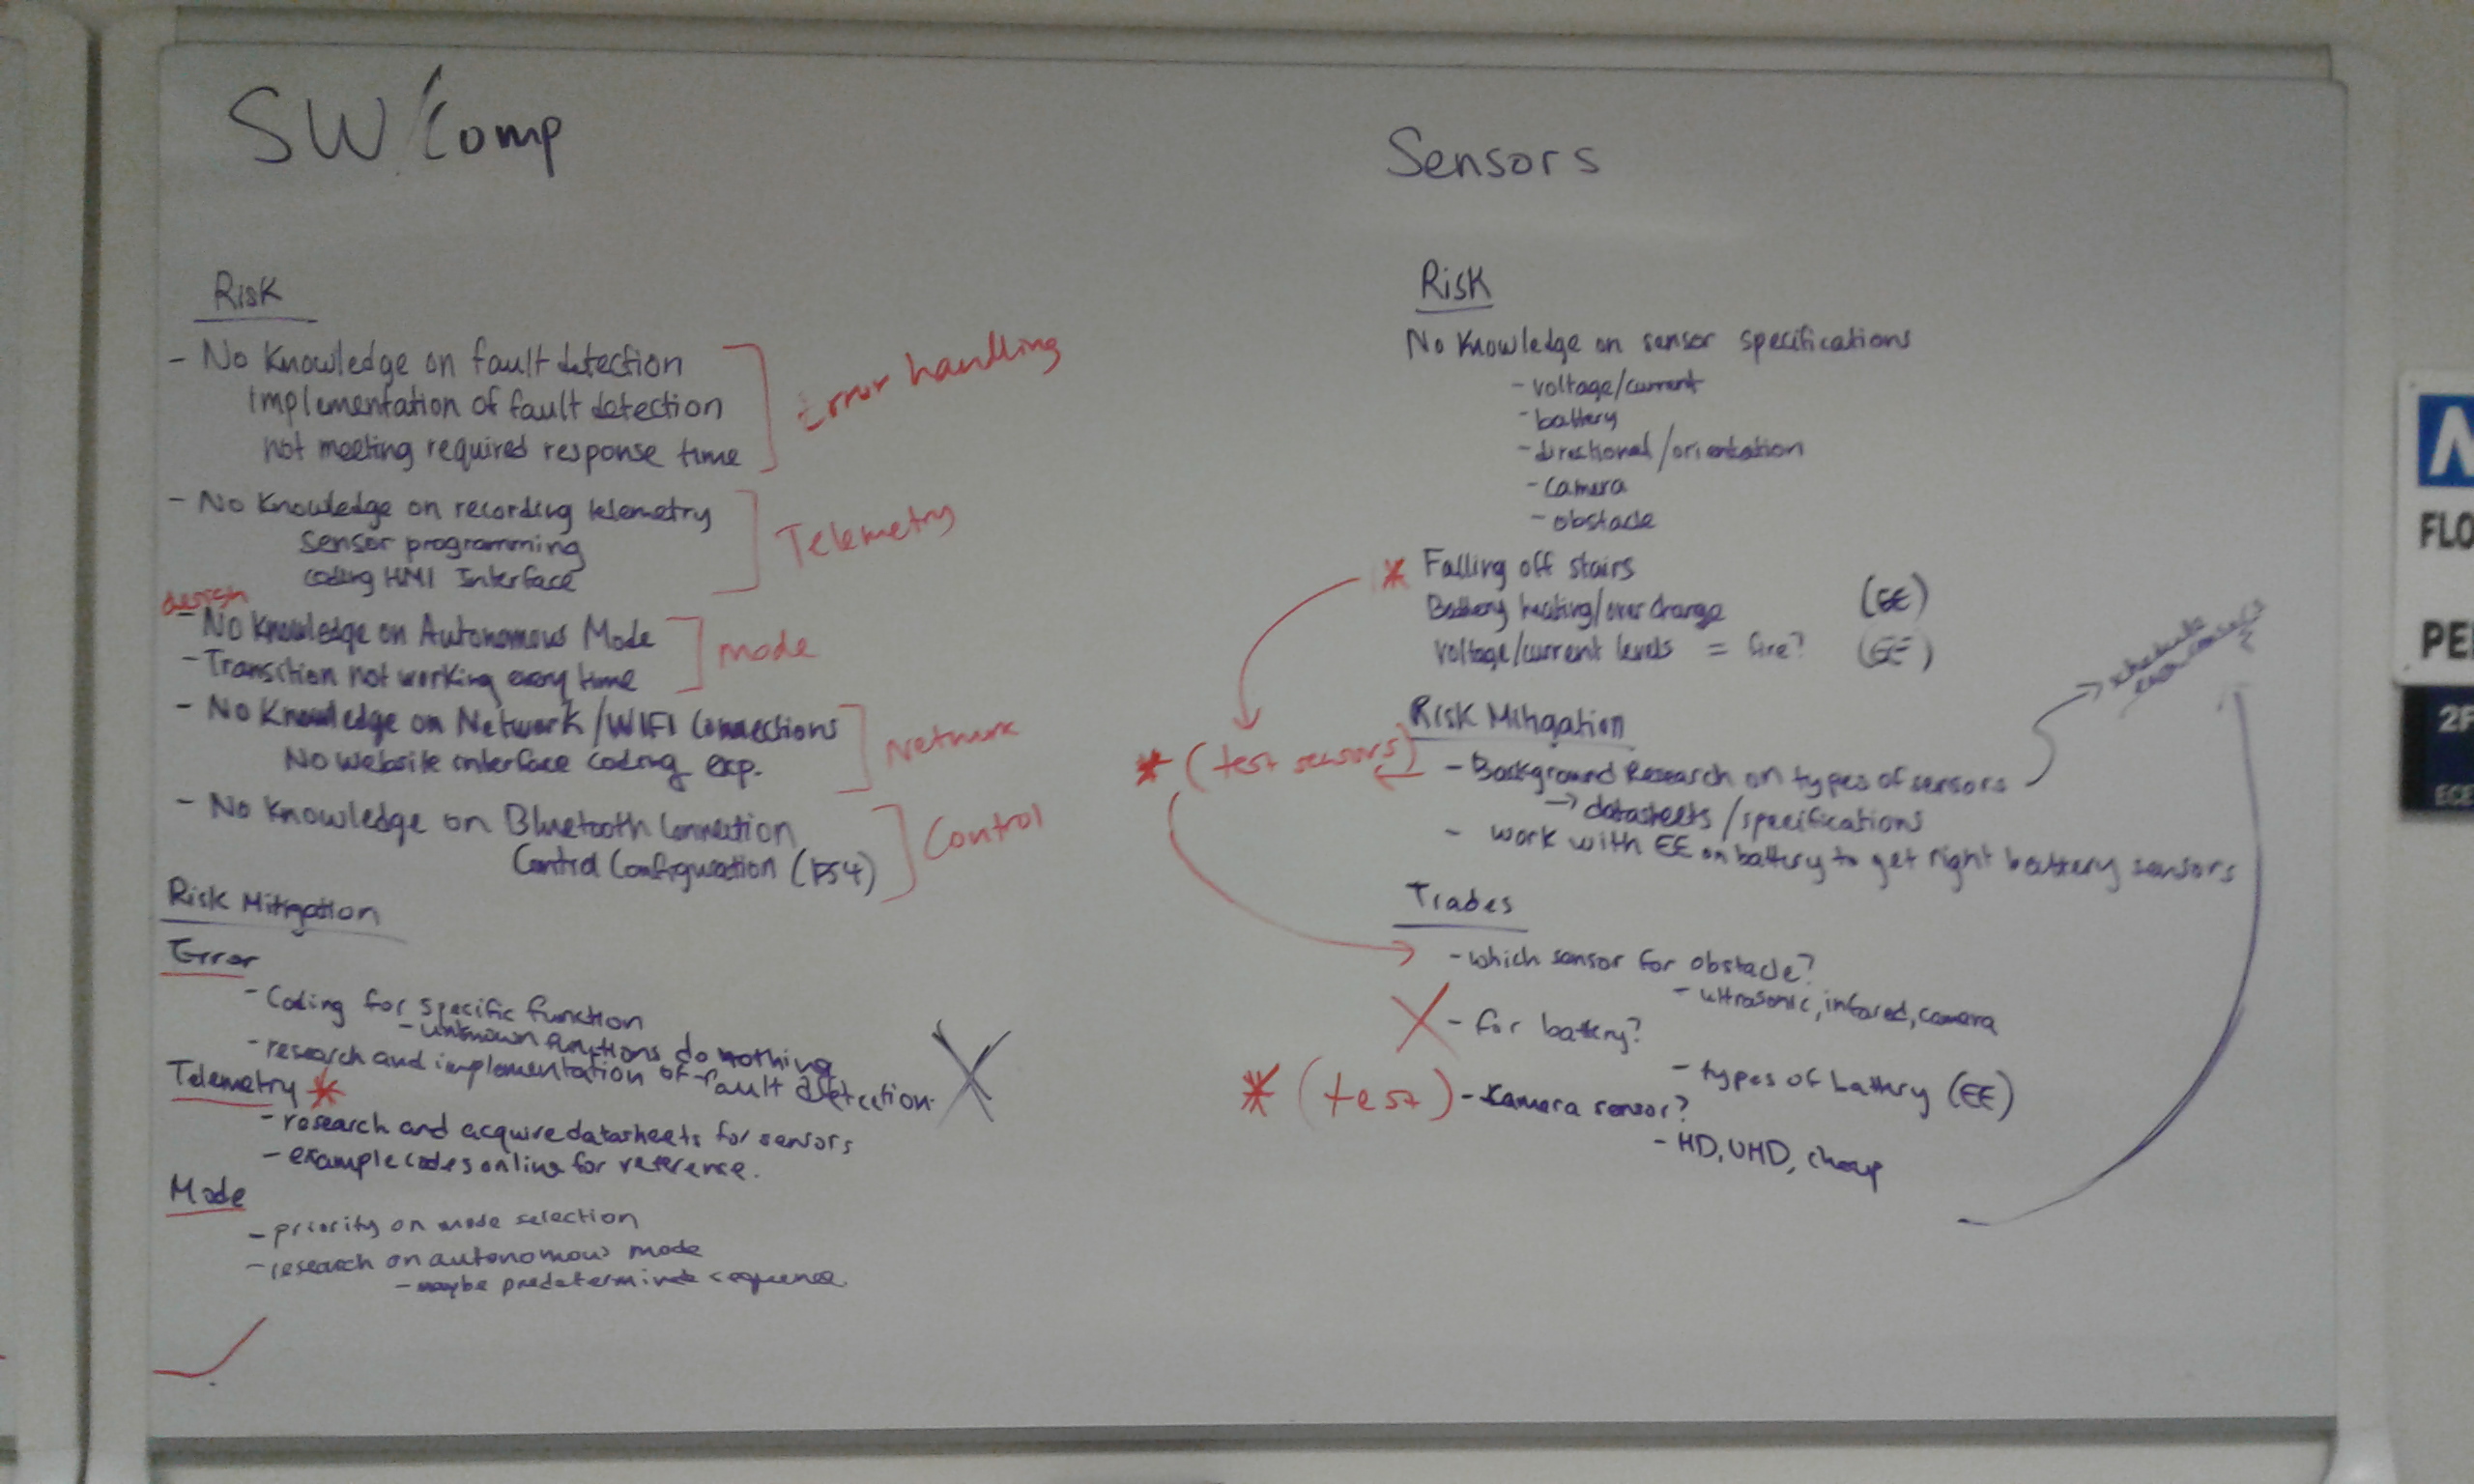 SW/Comp
Risk
- No Knowledge on fault detection
Implementation of fault detection
not meeting required response time
Error handling
- No Knowledge on recording telemetry
Sensor programming
coding HMI Interface
Telemetry
design
- No Knowledge on Autonomous Mode
- Transition not working every time
mode
- No Knowledge on Network/WIFI Connections
No website interface coding exp.
Network
- No Knowledge on Bluetooth Connection
Control Configuration (PS4)
Control
Risk Mitigation
Error
- Coding for specific function
- unknown functions do nothing
- research and implementation of fault detection
X
Telemetry *
- research and acquire datasheets for sensors
- example codes online for reference.
Mode
- priority on mode selection
- research on autonomous mode
- maybe predeterminate sequence
Sensors
Risk
No Knowledge on sensor specifications
- voltage/current
- battery
- directional/orientation
- camera
- obstacle
* Falling off stairs
Battery heating/over charge (EE)
Voltage/current levels = fire? (EE)
Risk Mitigation
* (test sensors)
- Background Research on types of sensors
→ datasheets/specifications
- work with EE on battery to get right battery sensors
Trades
- which sensor for obstacle?
- ultrasonic, infared, camera
X - for battery?
- types of battery (EE)
* (test) - camera sensor?
- HD, UHD, cheap
FLO
PE
2F
ECE